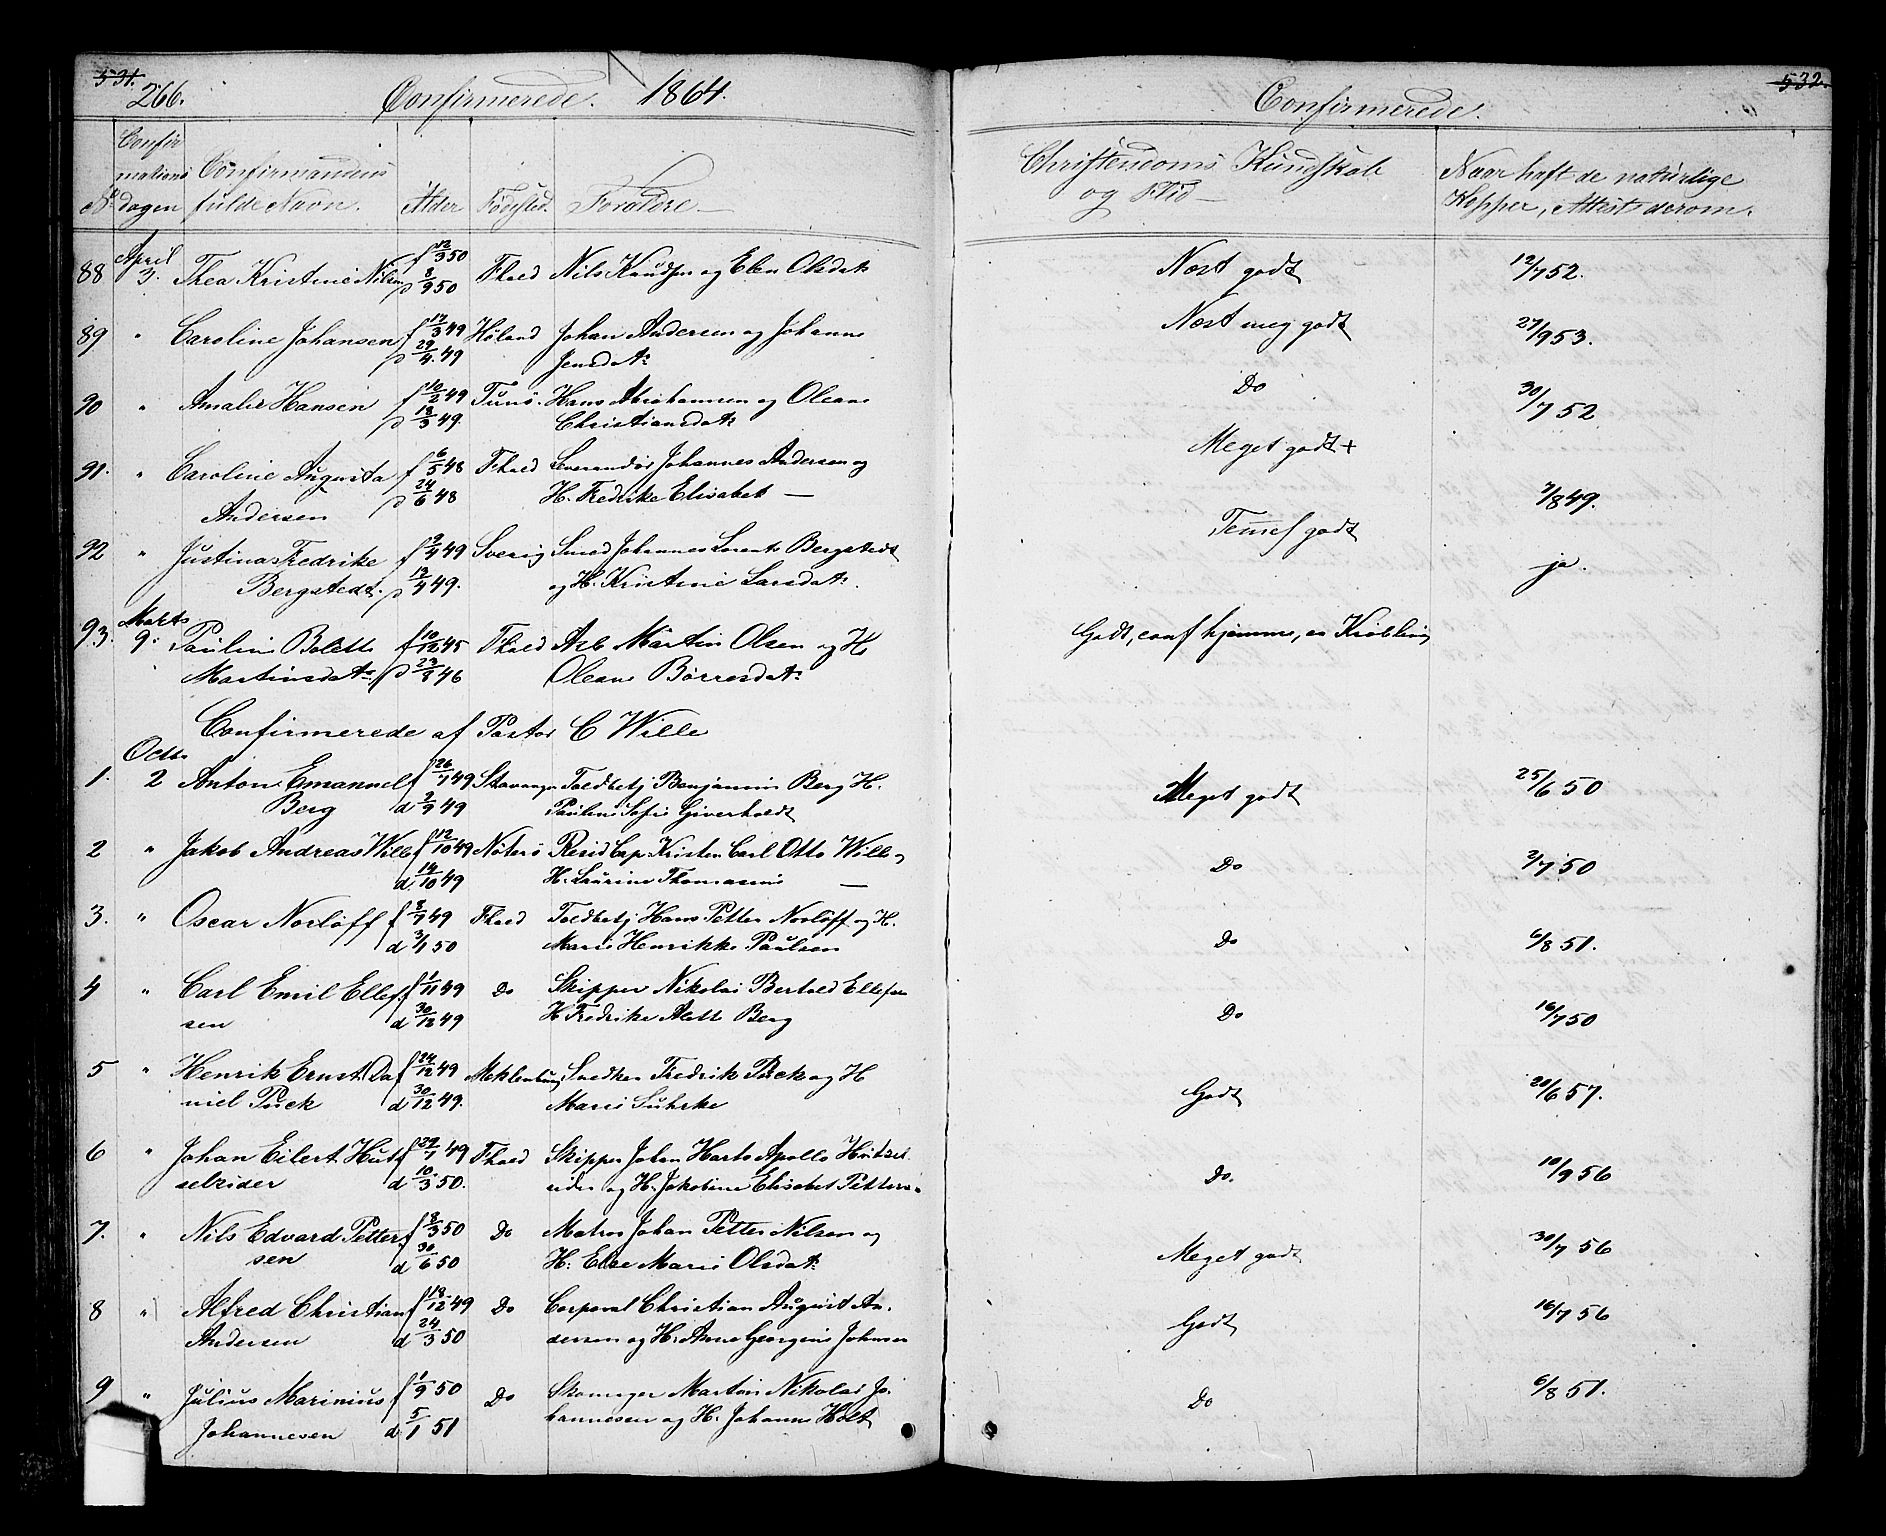 531.
266.
Confirmerede. 1864.
Confirmerede.
532.
No
Confirmations dagen
Confirmandens fulde Navn.
Alder
Fødested
Forældre
Christendoms Kundskab og Flid
Naar haft de naturlige Kopper, Attest derom.
88 April 3. Thea Kristine Nilsen f 12/3 50 Fhald Nils Knudsen og Elen Olsdatr Næst godt 12/7 52.
d 8/9 50
89 " Caroline Johansen f 14/3 49 Høland Johan Andersen og Johanne Næst meg godt 27/9 53.
d 29/4 49 Jensdatr
90 " Amalie Hansen f 10/2 49 Tunø. Hans Abrahamsen og Oleane Do 30/7 52
d 18/3 49. Christiansdatr
91. " Caroline Augusta f 6/5 48 Fhald Johannes Andersen og Meget godt + 7/8 49.
Andersen d 24/6 48 H. Fredrike Elisabet —
92 " Justina Fredrike f 9/4 49 Sverig Smed Johannes Lorents Bergstedt Temmel godt ja.
Bergstedt. d 12/4 49. og H. Kristine Larsdatr.
93. Marts 9. Pauline Bolette f 10/12 45 Fhald Arb Martin Olsen og H. Godt, conf hjemme, en Krøbling
Martinsdatr d 23/4 46 Oleane Børresdatr
Confirmerede af Pastor C Wille
1. Octbr 2 Anton Emanuel f 26/7 49 Stavanger Toldbetj Benjamin Berg H. Meget godt 25/6 50
Berg d 2/9 49 Pauline Sofie Giverholdt
2 " Jakob Andreas Wille f 12/10 49 Nøterø Resid Cap Kristen Carl Otto Wille og Do 2/7 50
d 14/10 49 H. Laurine Thomasine —
3. " Oscar Norløff f 8/7 49 Fhald Toldbetj Hans Petter Norløff og H. Do 6/8 51.
d 3/1 50 Marie Henrikke Paulsen
4 " Carl Emil Ellef- f 1/11 49 Do Skipper Nikolai Bertold Ellefsen Do 16/7 50
sen d 30/12 49 H Fredrike Alette Berg
5 " Henrik Ernst Da- f 24/12 49 Meklenburg Snedker Fredrik Pück og H Godt 20/6 57.
niel Pück d 30/12 49. Marie Suhrke
6 " Johan Eilert Hut- f 29/7 49 Fhald Skipper Johan Harts Apollo Do. 10/9 56
selrider d 10/3 50. og H. Jakobine Elisabet Petters
7. " Nils Edvard Petter- f 8/3 50 Do Matros Johan Petter Nilsen og Meget godt 30/7 56
sen d 30/6 50 H. Else Marie Olsdatr
8 " Alfred Christian f 18/12 49 Do Corporal Christian August An- Godt 16/7 56
Andersen d 24/3 50 dersen og H. Anne Georgine Johnsen
9 " Julius Marinius f 1/9 50 Do Skomager Martin Nikolai Jo- Do 6/8 51.
Johannesen d 5/1 51 hannesen og H. Johanne Holt